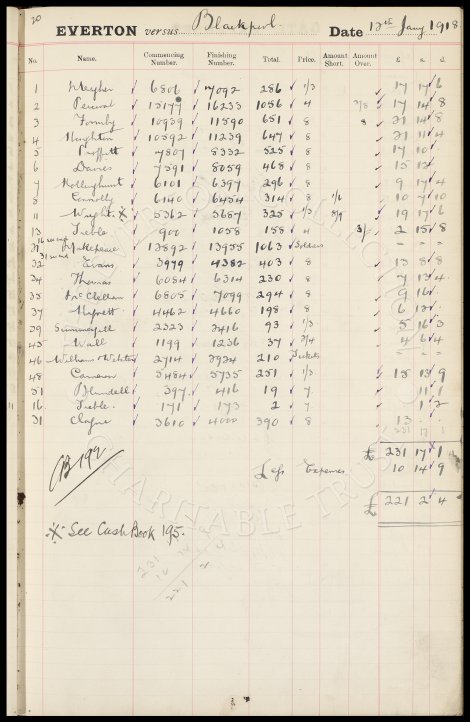 20
EVERTON versus Blackpool. Date 12th Jany 1918.
No. Name. Commencing Number. Finishing Number. Total. Price. Amount Short. Amount Over. £ s. d.
1 Meagher 6806 7092 286 1/3 17 17 6
2 Percival 15177 16233 1056 4 2/8 17 14 8
3 Formby 10939 11590 651 8 8 21 14 8
4 Houghton 10592 11239 647 8 21 11 4
5 Proffitt 7807 8332 525 8 17 10
6 Davies 7591 8059 468 8 15 12
7 Hollinghurst 6101 6397 296 8 9 17 4
8 Connolly 6140 6454 314 8 1/6 10 7 10
11 Wright ※ 5362 5687 325 1/3 8/9 19 17 6
13 Treble 900 1058 158 4 3/ 2 15 8
Makepeace 12892 13955 1063 = = =
32 Evans 3979 4382 403 8 13 8 8
34 Thomas 6084 6314 230 8 7 13 4
35 McClellan 6805 7099 294 8 9 16
37 4462 4660 198 8 6 12
39 Summergill 2323 2416 93 1/3 5 16 3
45 Wall 1199 1236 37 2/4 4 6 4
46 William Webster 2714 2924 210 Tickets = = =
48 Cameron 5484 5735 251 1/3 15 13 9
51 Blundell 397 416 19 7 11 1
16 Treble. 171 173 2 7 1 2
31 Clague 3610 4000 390 8 13
231 17 1
£ 231 17 1
CB 192
Less Expenses 10 14 9
£ 221 2 4
※ See Cash Book 195.
231
10 14
221 2 4
CHARITABLE TRUST